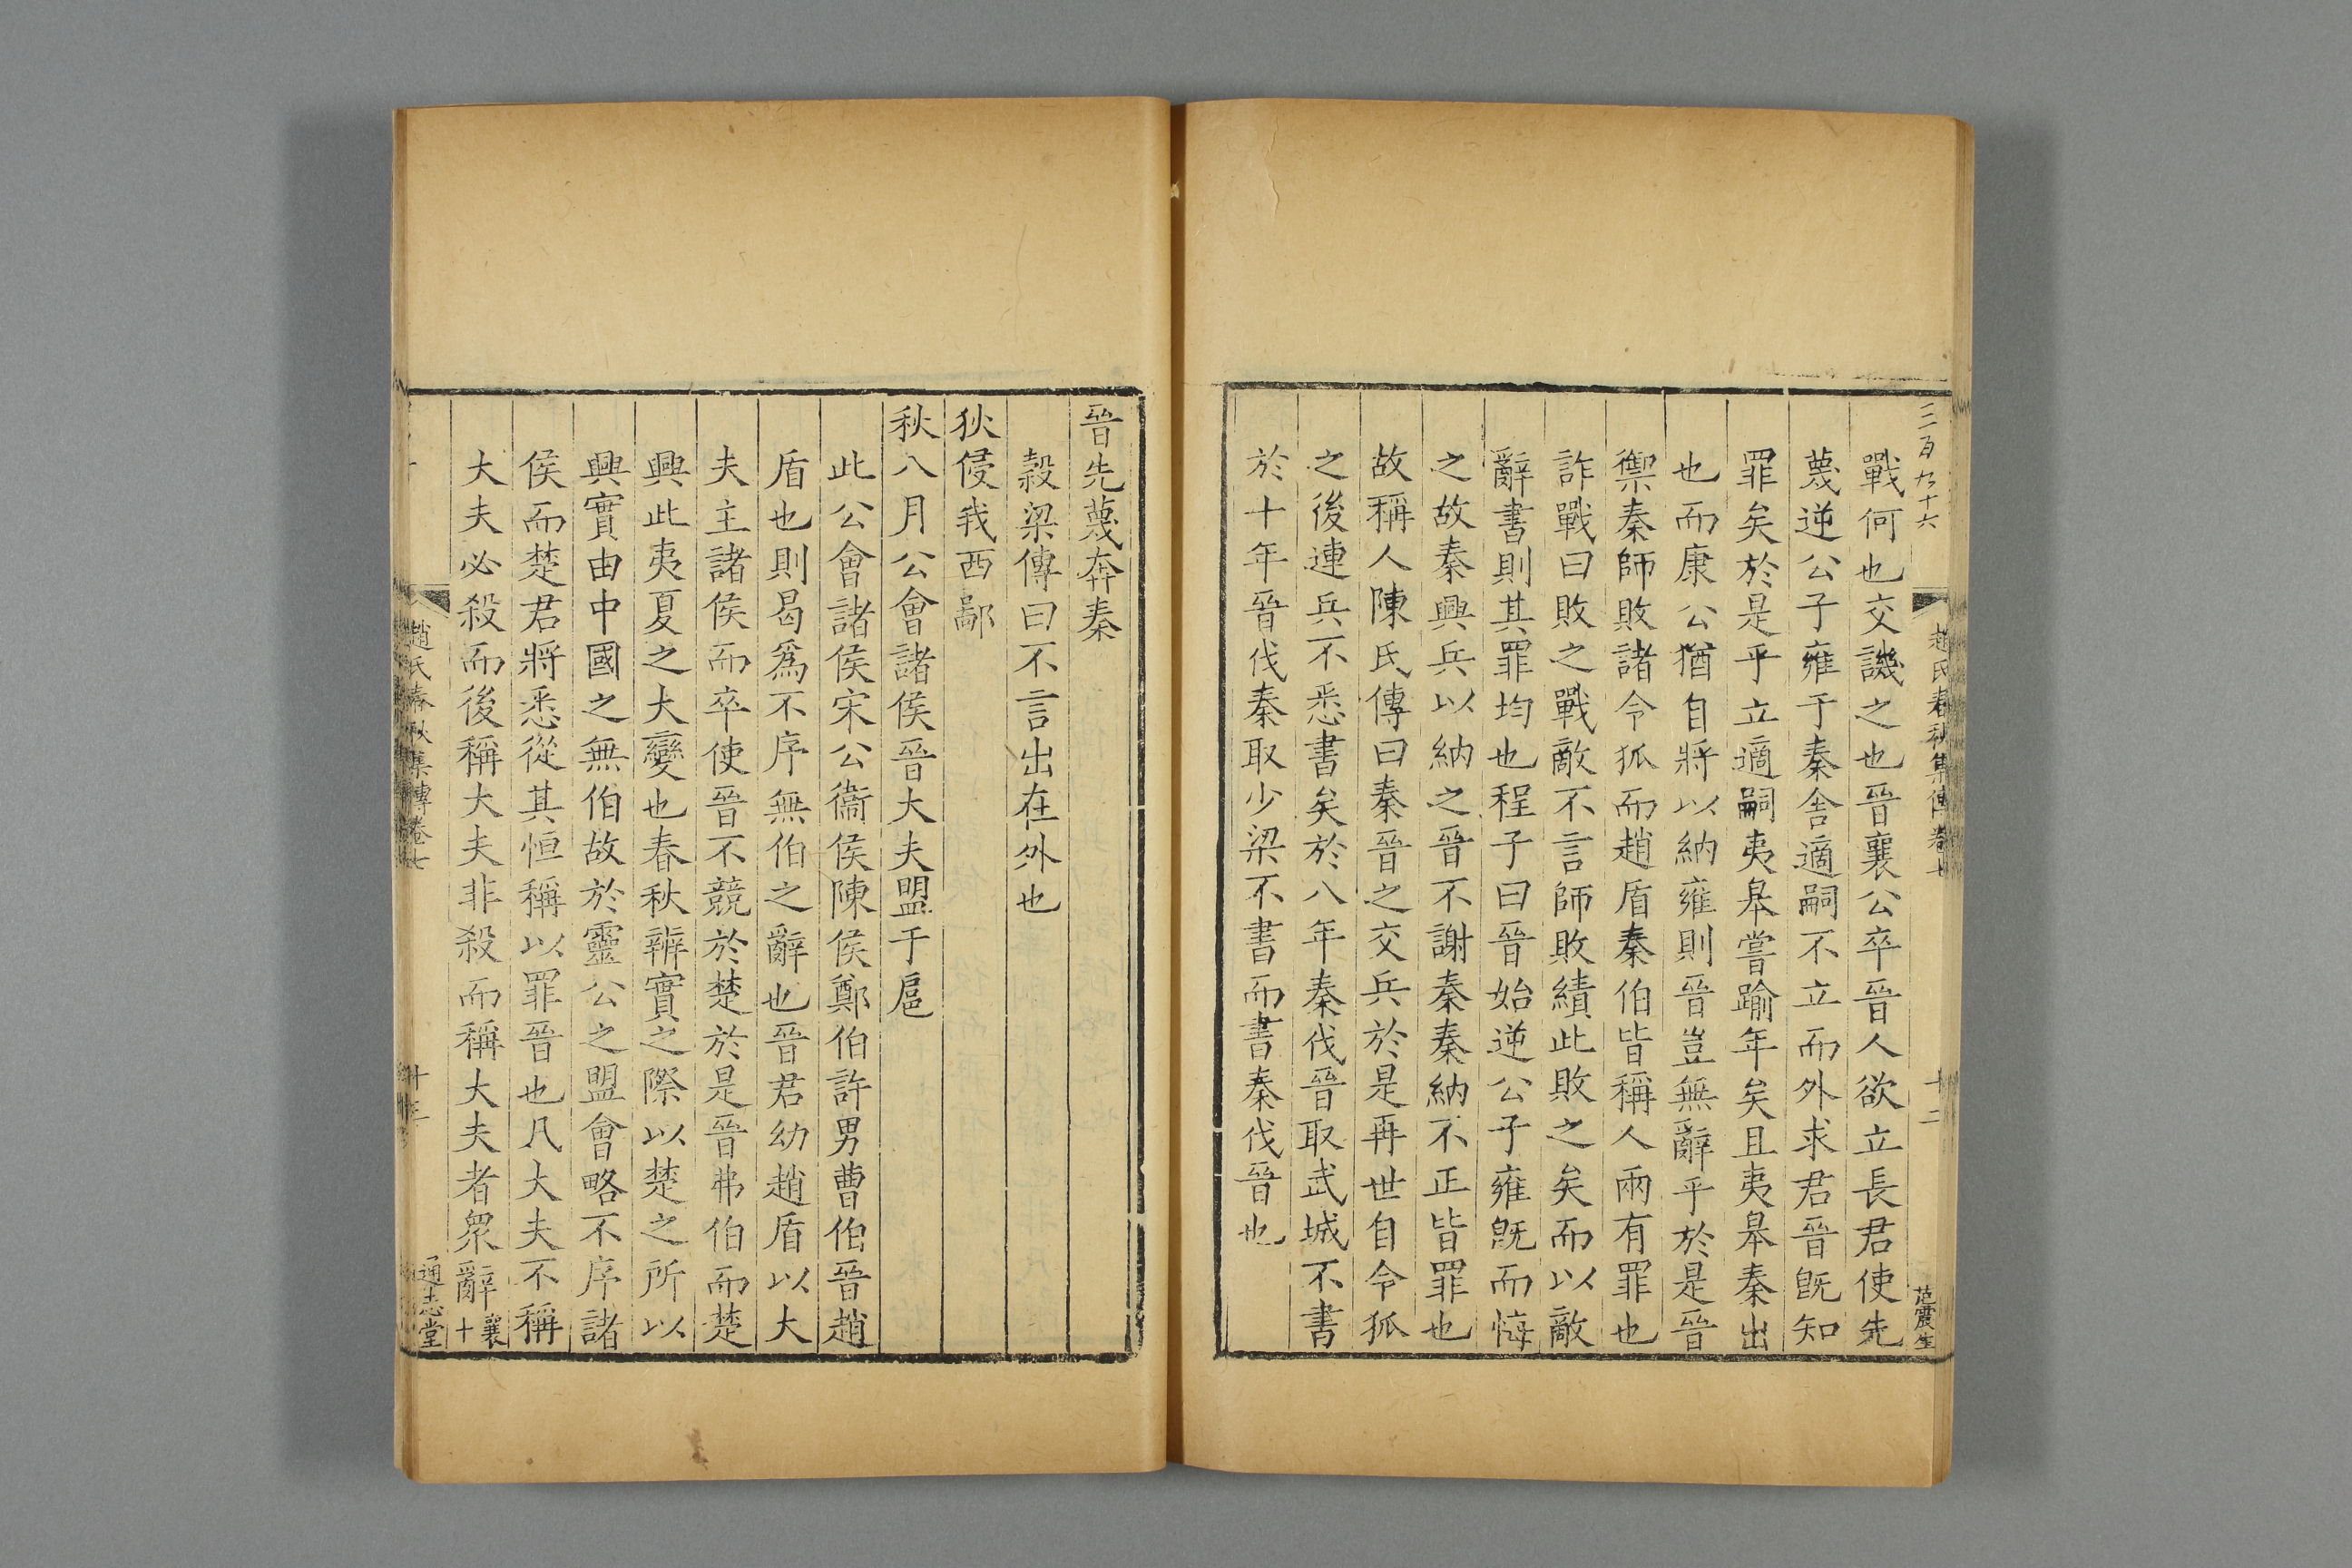 三百九十六
趙氏春秋集傳卷七
十二
范震生
戰何也交譏之也晉襄公卒晉人欲立長君使先
蔑逆公子雍于秦舍適嗣不立而外求君晉旣知
罪矣於是乎立適嗣夷皋嘗踰年矣且夷皋秦出
也而康公猶自將以納雍則晉豈無辭乎於是晉
禦秦師敗諸令狐而趙盾秦伯皆稱人兩有罪也
詐戰曰敗之戰敵不言師敗績此敗之矣而以敵
辭書則其罪均也程子曰晉始逆公子雍旣而悔
之故秦興兵以納之晉不謝秦秦納不正皆罪也
故稱人陳氏傳曰秦晉之交兵於是再世自令狐
之後連兵不悉書矣於八年秦伐晉取武城不書
於十年晉伐秦取少梁不書而書秦伐晉也
晉先蔑奔秦
穀梁傳曰不言出在外也
狄侵我西鄙
秋八月公會諸侯晉大夫盟于扈
此公會諸侯宋公衞侯陳侯鄭伯許男曹伯晉趙
盾也則曷爲不序無伯之辭也晉君幼趙盾以大
夫主諸侯而卒使晉不競於楚於是晉弗伯而楚
興此夷夏之大變也春秋辨實之際以楚之所以
興實由中國之無伯故於靈公之盟會略不序諸
侯而楚君將悉從其恒稱以罪晉也凡大夫不稱
大夫必殺而後稱大夫非殺而稱大夫者衆辭襄十
趙氏春秋集傳卷七
十三
通志堂